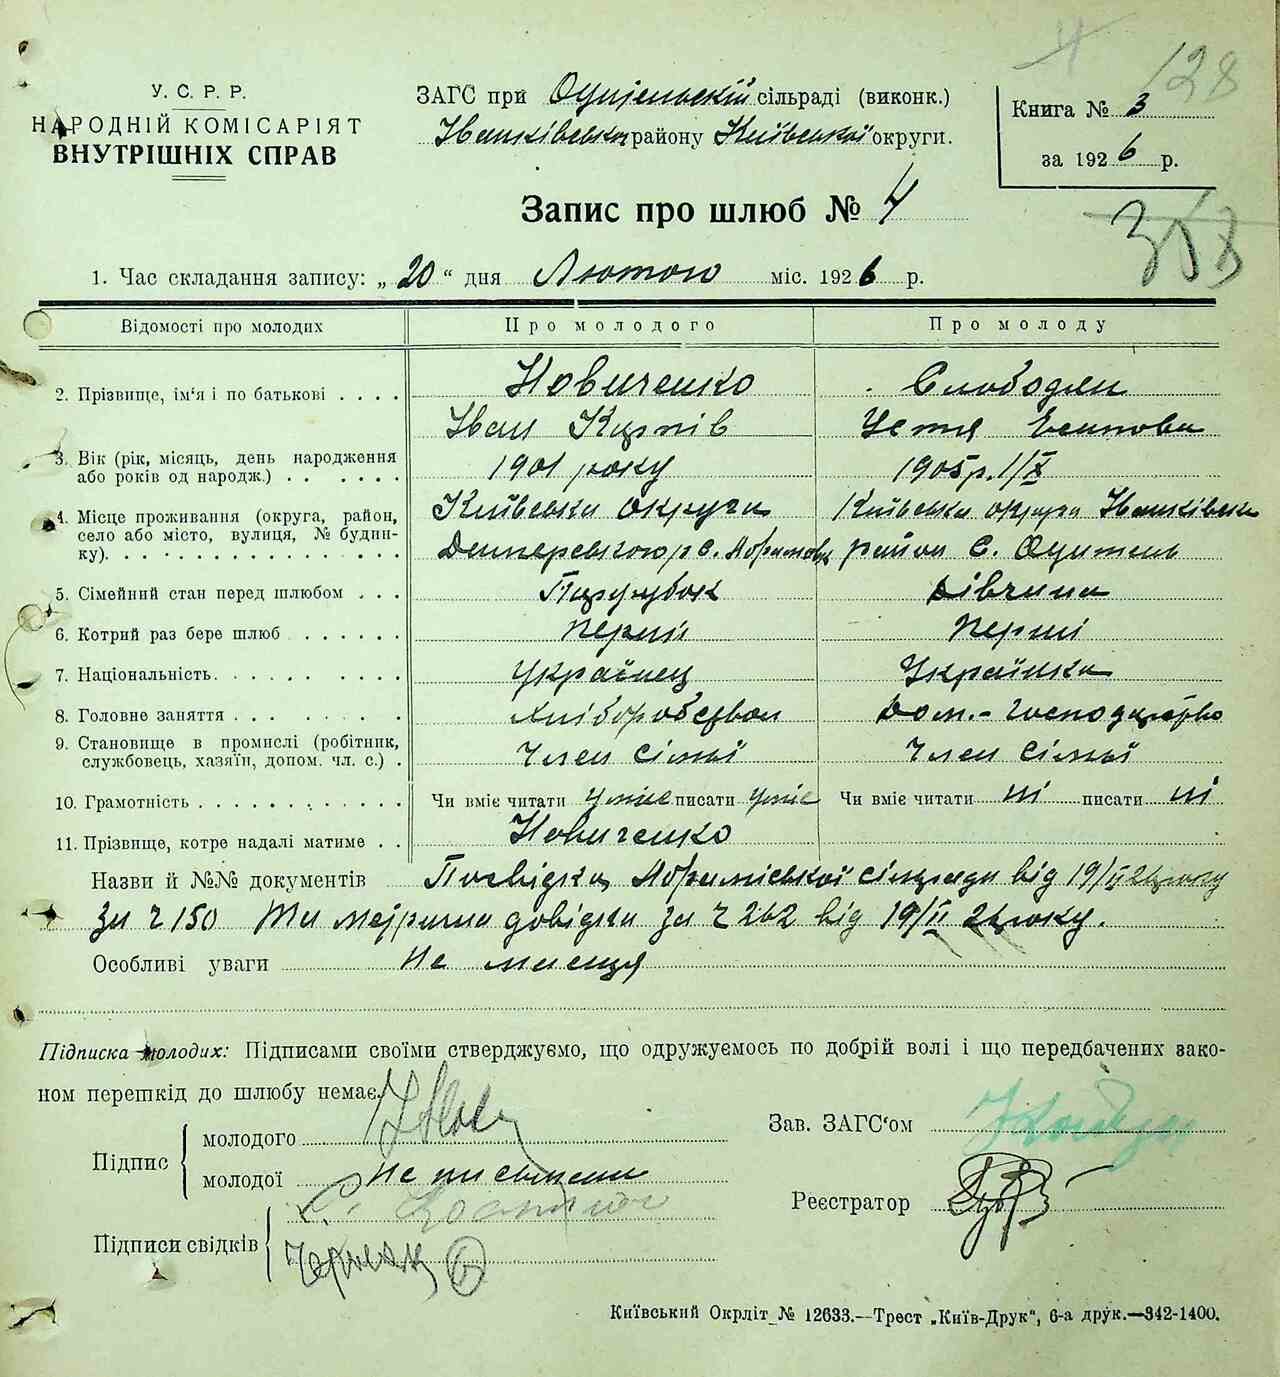 У. С. Р. Р.
НАРОДНІЙ КОМІСАРІЯТ
ВНУТРІШНІХ СПРАВ
ЗАГС при сільраді (виконк.)
району Київської округи.
Книга № 3
за 1926 р.
128
353
Запис про шлюб № 4
1. Час складання запису: „20“ дня Лютого міс. 1926 р.
Відомості про молодих
Про молодого
Про молоду
2. Прізвище, ім'я і по батькові . . . .
Новиченко
Слободян
Іван Карпів
Устя Есипова
3. Вік (рік, місяць, день народження
або років од народж.) . . . . . . .
1901 року
1905 р. 1/X
4. Місце проживання (округа, район,
село або місто, вулиця, № будин-
ку). . . . . . . . . . . . . . . .
Київська округа
Київська округа
Димерського р с.
район с. Оцитель
5. Сімейний стан перед шлюбом . . .
Парубок
Дівчина
6. Котрий раз бере шлюб . . . . . .
перший
перший
7. Національність. . . . . . . . . .
Українец
Українка
8. Головне заняття . . . . . . . . .
хліборобство
Дом.- господарство
9. Становище в промислі (робітник,
службовець, хазяїн, допом. чл. с.) .
Член сімьї
Член сімьї
10. Грамотність . . . . . . . . . . .
Чи вміє читати уміє писати уміє
Чи вміє читати ні писати ні
11. Прізвище, котре надалі матиме . .
Новиченко
Назви й №№ документів Посвідка сільради від 19/II 26 року
за ч 150 Та довідка за ч 262 від 19/II 26 року.
Особливі уваги Не
Підписка молодих: Підписами своїми стверджуємо, що одружуємось по добрій волі і що передбачених зако-
ном перешкід до шлюбу немає.
Підпис
молодого
молодої Не письменна
Підписи свідків
Зав. ЗАГС'ом
Реєстратор
Київський Окрліт № 12633.—Трест „Київ-Друк“, 6-а друк.—342-1400.